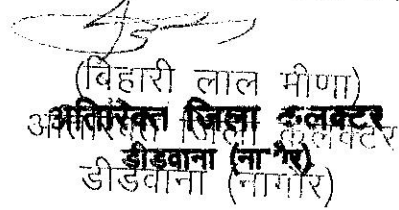 (बिहारी लाल मीणा)
अतिरिक्त जिला कलक्टर
अतिरिक्त जिला कलक्टर
डीडवाना (नागौर)
डीडवाना (नागौर)